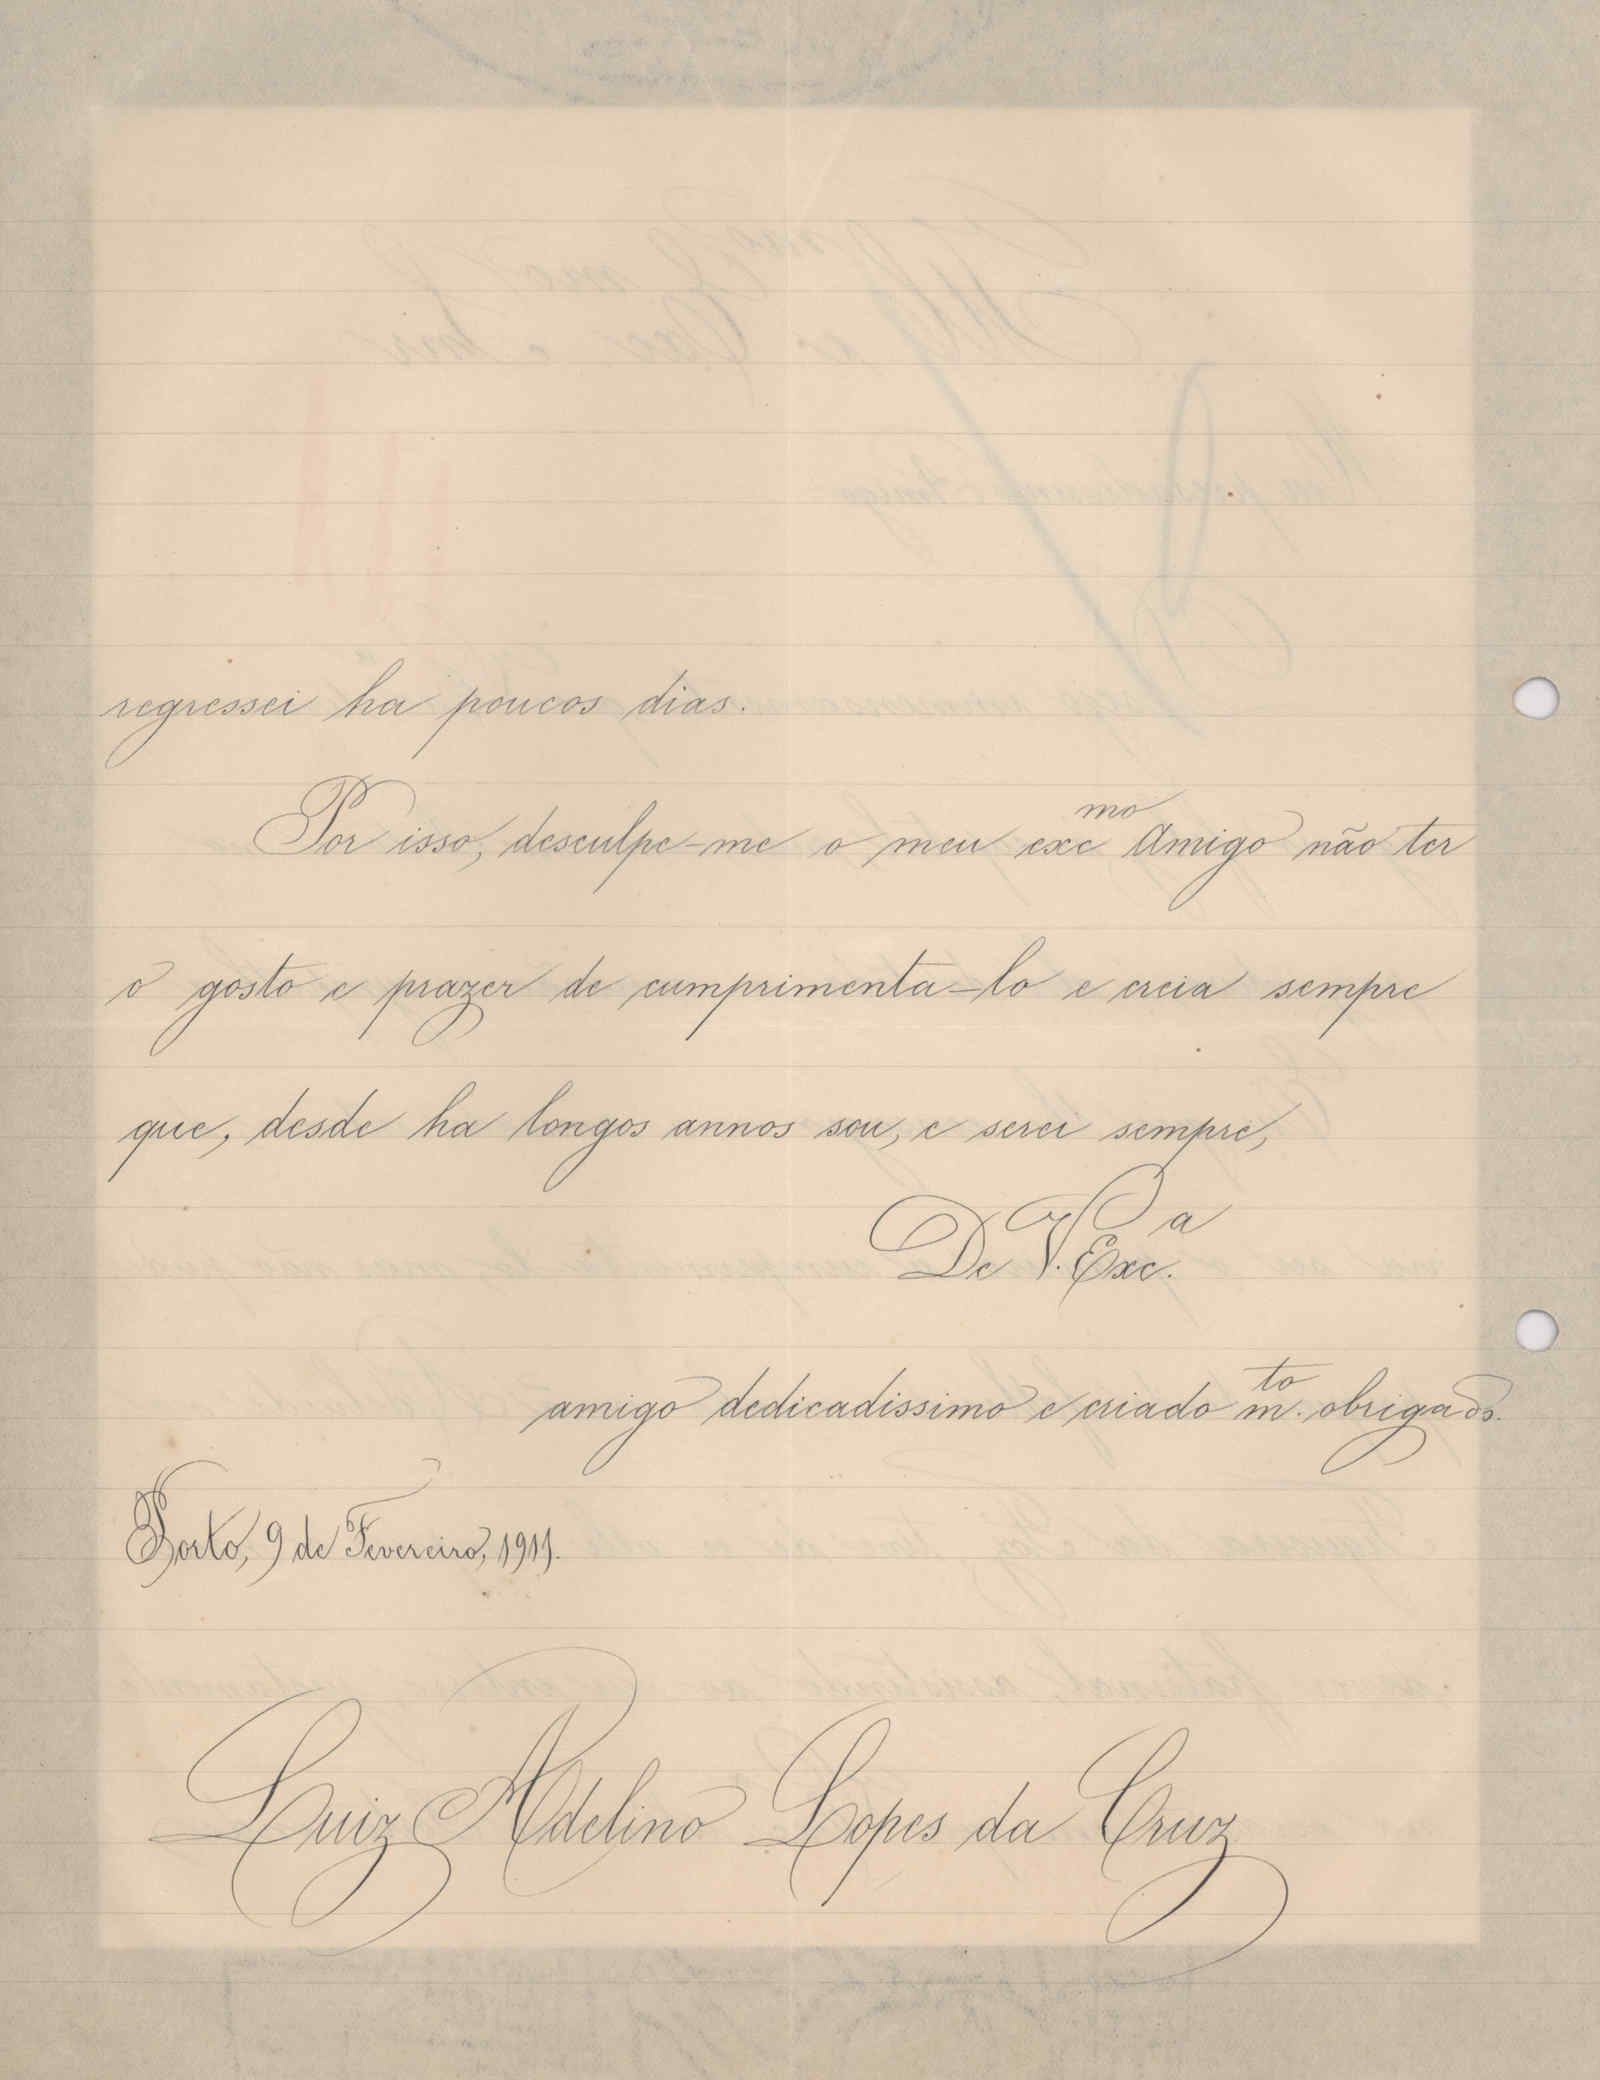 regressei ha poucos dias.
Por isso, desculpe-me o meu exc.mo Amigo não ter
o gosto e prazer de cumprimenta-lo e creia sempre
que, desde ha longos annos sou, e serei sempre,
De V. Exc.a
amigo dedicadissimo e criado m.to obrigado.
Porto, 9 de Fevereiro, 1911.
Luiz Adelino Lopes da Cruz